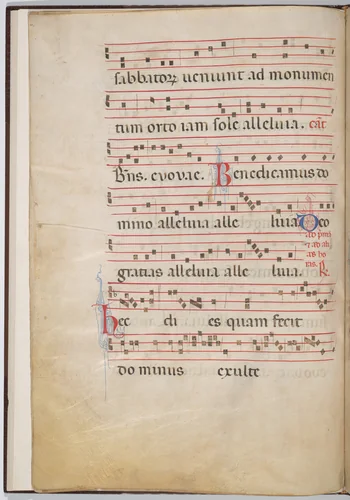 sabbatoꝝ ueniunt ad monumen
tum orto iam sole alleluia. cãt
Bñs. evovae. Benedicamus do
mino alleluia alle luia Deo
gratias alleluia alle luia.
hec di es quam fecit
do minus exulte